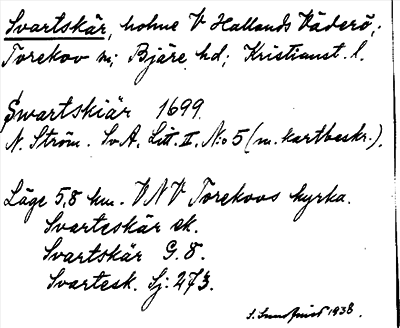 Svartskär, holme V Hallands Väderö;
Torekov sn; Bjäre hd; Kristianst. l.
Swartskiär 1699
N. Ström. SvA. Litt. II. N:o 5 (m. kartbeskr.).
Läge 5,8 km. VNV Torekovs kyrka.
Svarteskär ek.
Svartskär G. 8.
Svartesk. Sj. 273.
S. Sundqvist 1938.